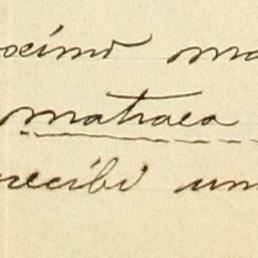 oximo ma
matraca
recibi un